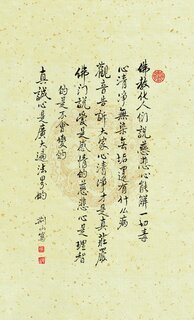 佛教化人們說慈悲心能解一切毒
心清淨無染無垢還有什么病
觀音告訴大家心清淨才是真莊嚴
佛門說愛是感情的慈悲心是理智
的是不會變的
真誠心是廣大遍法界的